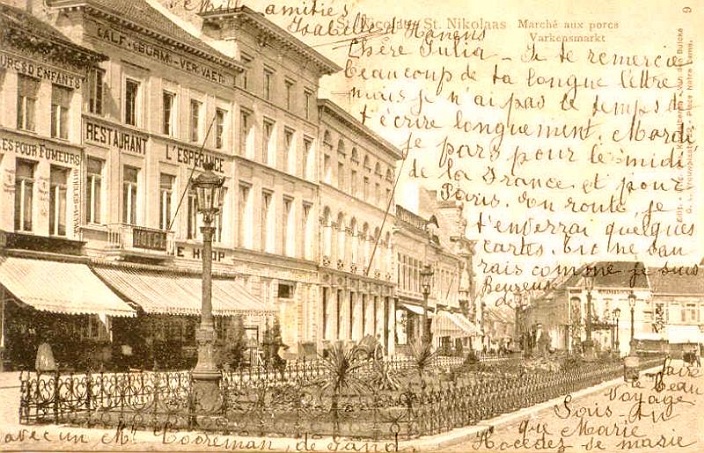 Mille amitiés
Isabelle d'Hanens
St. Nicolas St. Nikolaas
Marché aux porcs
Varkensmarkt
9
Chère Julia - Je te remercie
beaucoup de ta longue lettre
mais je n'ai pas le temps de
t'écrire longuement. Mardi
je pars pour le midi
de la France et pour
Paris. En route, je
t'enverrai quelques
cartes. Tu ne sau
rais comme je suis
heureuse
de
faire
ce beau
voyage
Sais-tu
que Marie
Hocedez se marie
avec un Mr. Cooreman, de Gand
CALF-(BURM-VERVAET)
RESTAURANT L'ESPERANCE
D'ENFANTS
POUR FUMEURS